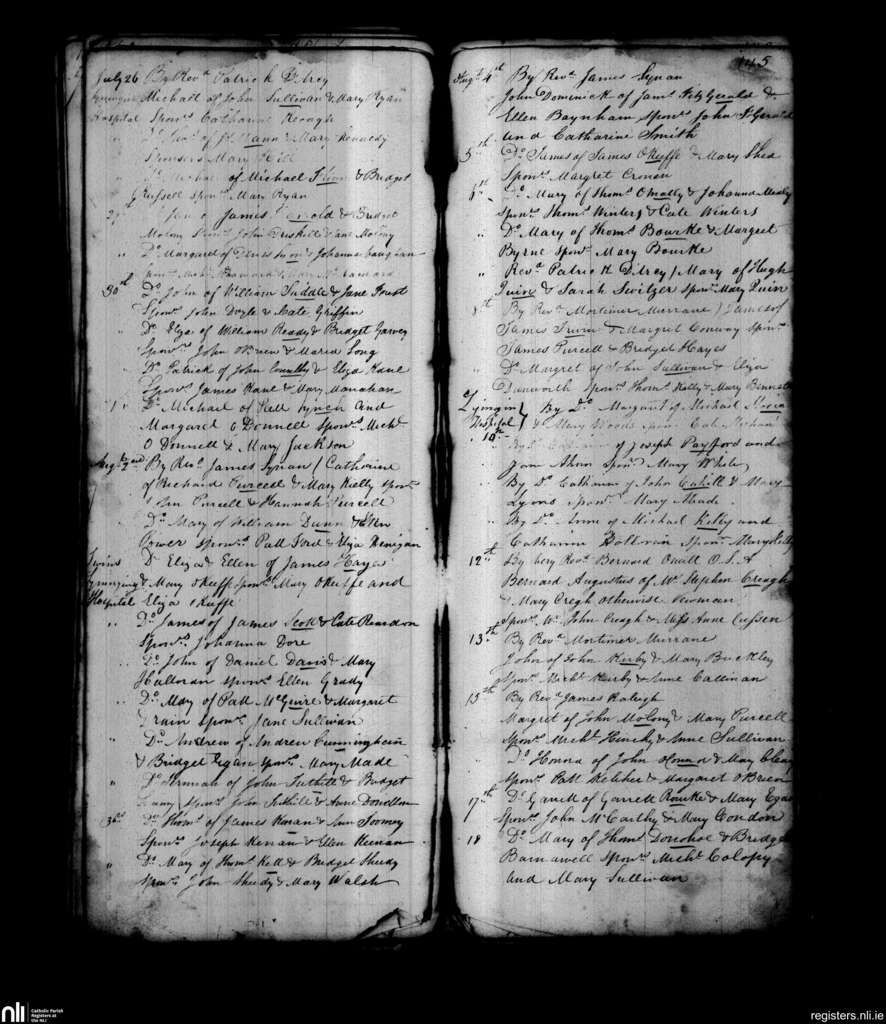 July 26 By Revd. Patrick Dilrey
Lyingin Michael of John Sullivan & Mary Ryan
Hospital Sponrs Catharine Keough
Mary Kennedy
Sponsors Mary
of Michael & Bridget
Russell sponrs Mary Ryan
James & Bridget
Molony Sponrs John Driskill & Jane Molony
Do. Margaret of & Johanna
30th Do. John of William Siddle & Jane Foust
Sponrs John Doyle & Cate Griffin
" Do. Eliza of William Ready & Bridget Garvey
Sponrs John OBrien & Maria Long
" Do. Patrick of John Connelly & Eliza Kane
Sponrs James Kane & Mary Manahan
" 1 Do. Michael of Lynch and
Margaret O Donnell Sponrs Michl.
O Donnell & Mary Jackson
Augt. 2nd By Revd. James Synan / Catharine
of Richard Purcell & Mary Kielly sponrs
John Purcell & Hannah Purcell
Do. Mary of William Dunn & Ellen
Power Sponrs Patt Ford & Eliza Henigan
Do. Eliza & Ellen of James Hayes
& Mary OKeeff Sponrs Mary OKeeffe and
Hospital Eliza OKeffe
" Do. James of James Scott & Cate Reardon
Sponrs Johanna Dore
" Do. John of Daniel Davis & Mary
Halloran sponrs Ellen Grady
" Do. Mary of Patt McGuire & Margaret
Drain Sponrs Jane Sullivan
" Do. Andrew of Andrew Cunningham
& Bridget Egan Sponrs Mary Made
" Do. of John Tuthill & Bridget
Sponrs John Tuthill & Anne Donellon
3rd Do. Thoms. of James Kenan & Ann Toomey
Sponrs Joseph Kenan & Ellen Keenan
" Do. Mary of Thoms. Kett & Bridget Sheedy
Sponrs John Sheedy & Mary Walsh
145
Augt. 4th By Revd. James Synan
John Dominick of Jams. FitzGerald &
Ellen Baynham sponrs John FGerald
and Catharine Smith
5th Do. James of James OKeiffe & Mary Shea
Sponrs Margret Cronin
6th Do. Mary of Thoms. Omally & Johanna
sponrs Thoms. Winters & Cate Winters
" Do. Mary of Thoms. Bourke & Margret
Byrne sponrs Mary Bourke
" Revd. Patrick Dilrey / Mary of Hugh
Quin & Sarah Switzer sponrs Mary Quin
8th By Revd. Mortimer Murrane / James of
James Irwin & Margret Conway Sponrs
James Purcell & Bridget Hayes
" Do. Margret of John Sullivan & Eliza
sponrs Thoms. Kelly & Mary Bennett
Lyingin By Do. Margaret of Michael
Hospital & Mary Woods sponrs
10th of Joseph Payford and
Ahern sponrs Mary Whela
By Do. Catharine of John Cahill & Mary
Lyons Sponrs Mary Meade
" By Do. Anne of Michael Kelly and
Catharine Sponrs Mary Kelly
12th By Very Revd. Bernard Oneill O.S.A
Bernard Augustus of Wm. Stephen Creagh
& Mary Cregh otherwise Newman
Sponrs Wm. John Creagh & Miss Anne Cussen
13th By Revd. Mortimer Murrane
John of John Kirby & Mary Buckley
Sponrs Michl. Kirby & Anne Callinan
15th By Revd. James Raleigh
Margret of John Molony & Mary Purcell
Sponrs Michl. Hinchy & Anne Sullivan
" Do. Honora of John & Mary Cleary
sponrs Patt Kelcher & Margaret OBrien
17th Do. Garrett of Garrett Rourke & Mary Egan
Sponrs John McCarthy & Mary Condon
18 Do. Mary of Thoms. Donohoe & Bridget
Barnawell Sponrs Michl. Colopy
and Mary Sullivan
nli Catholic Parish
Registers at
the NLI
registers.nli.ie